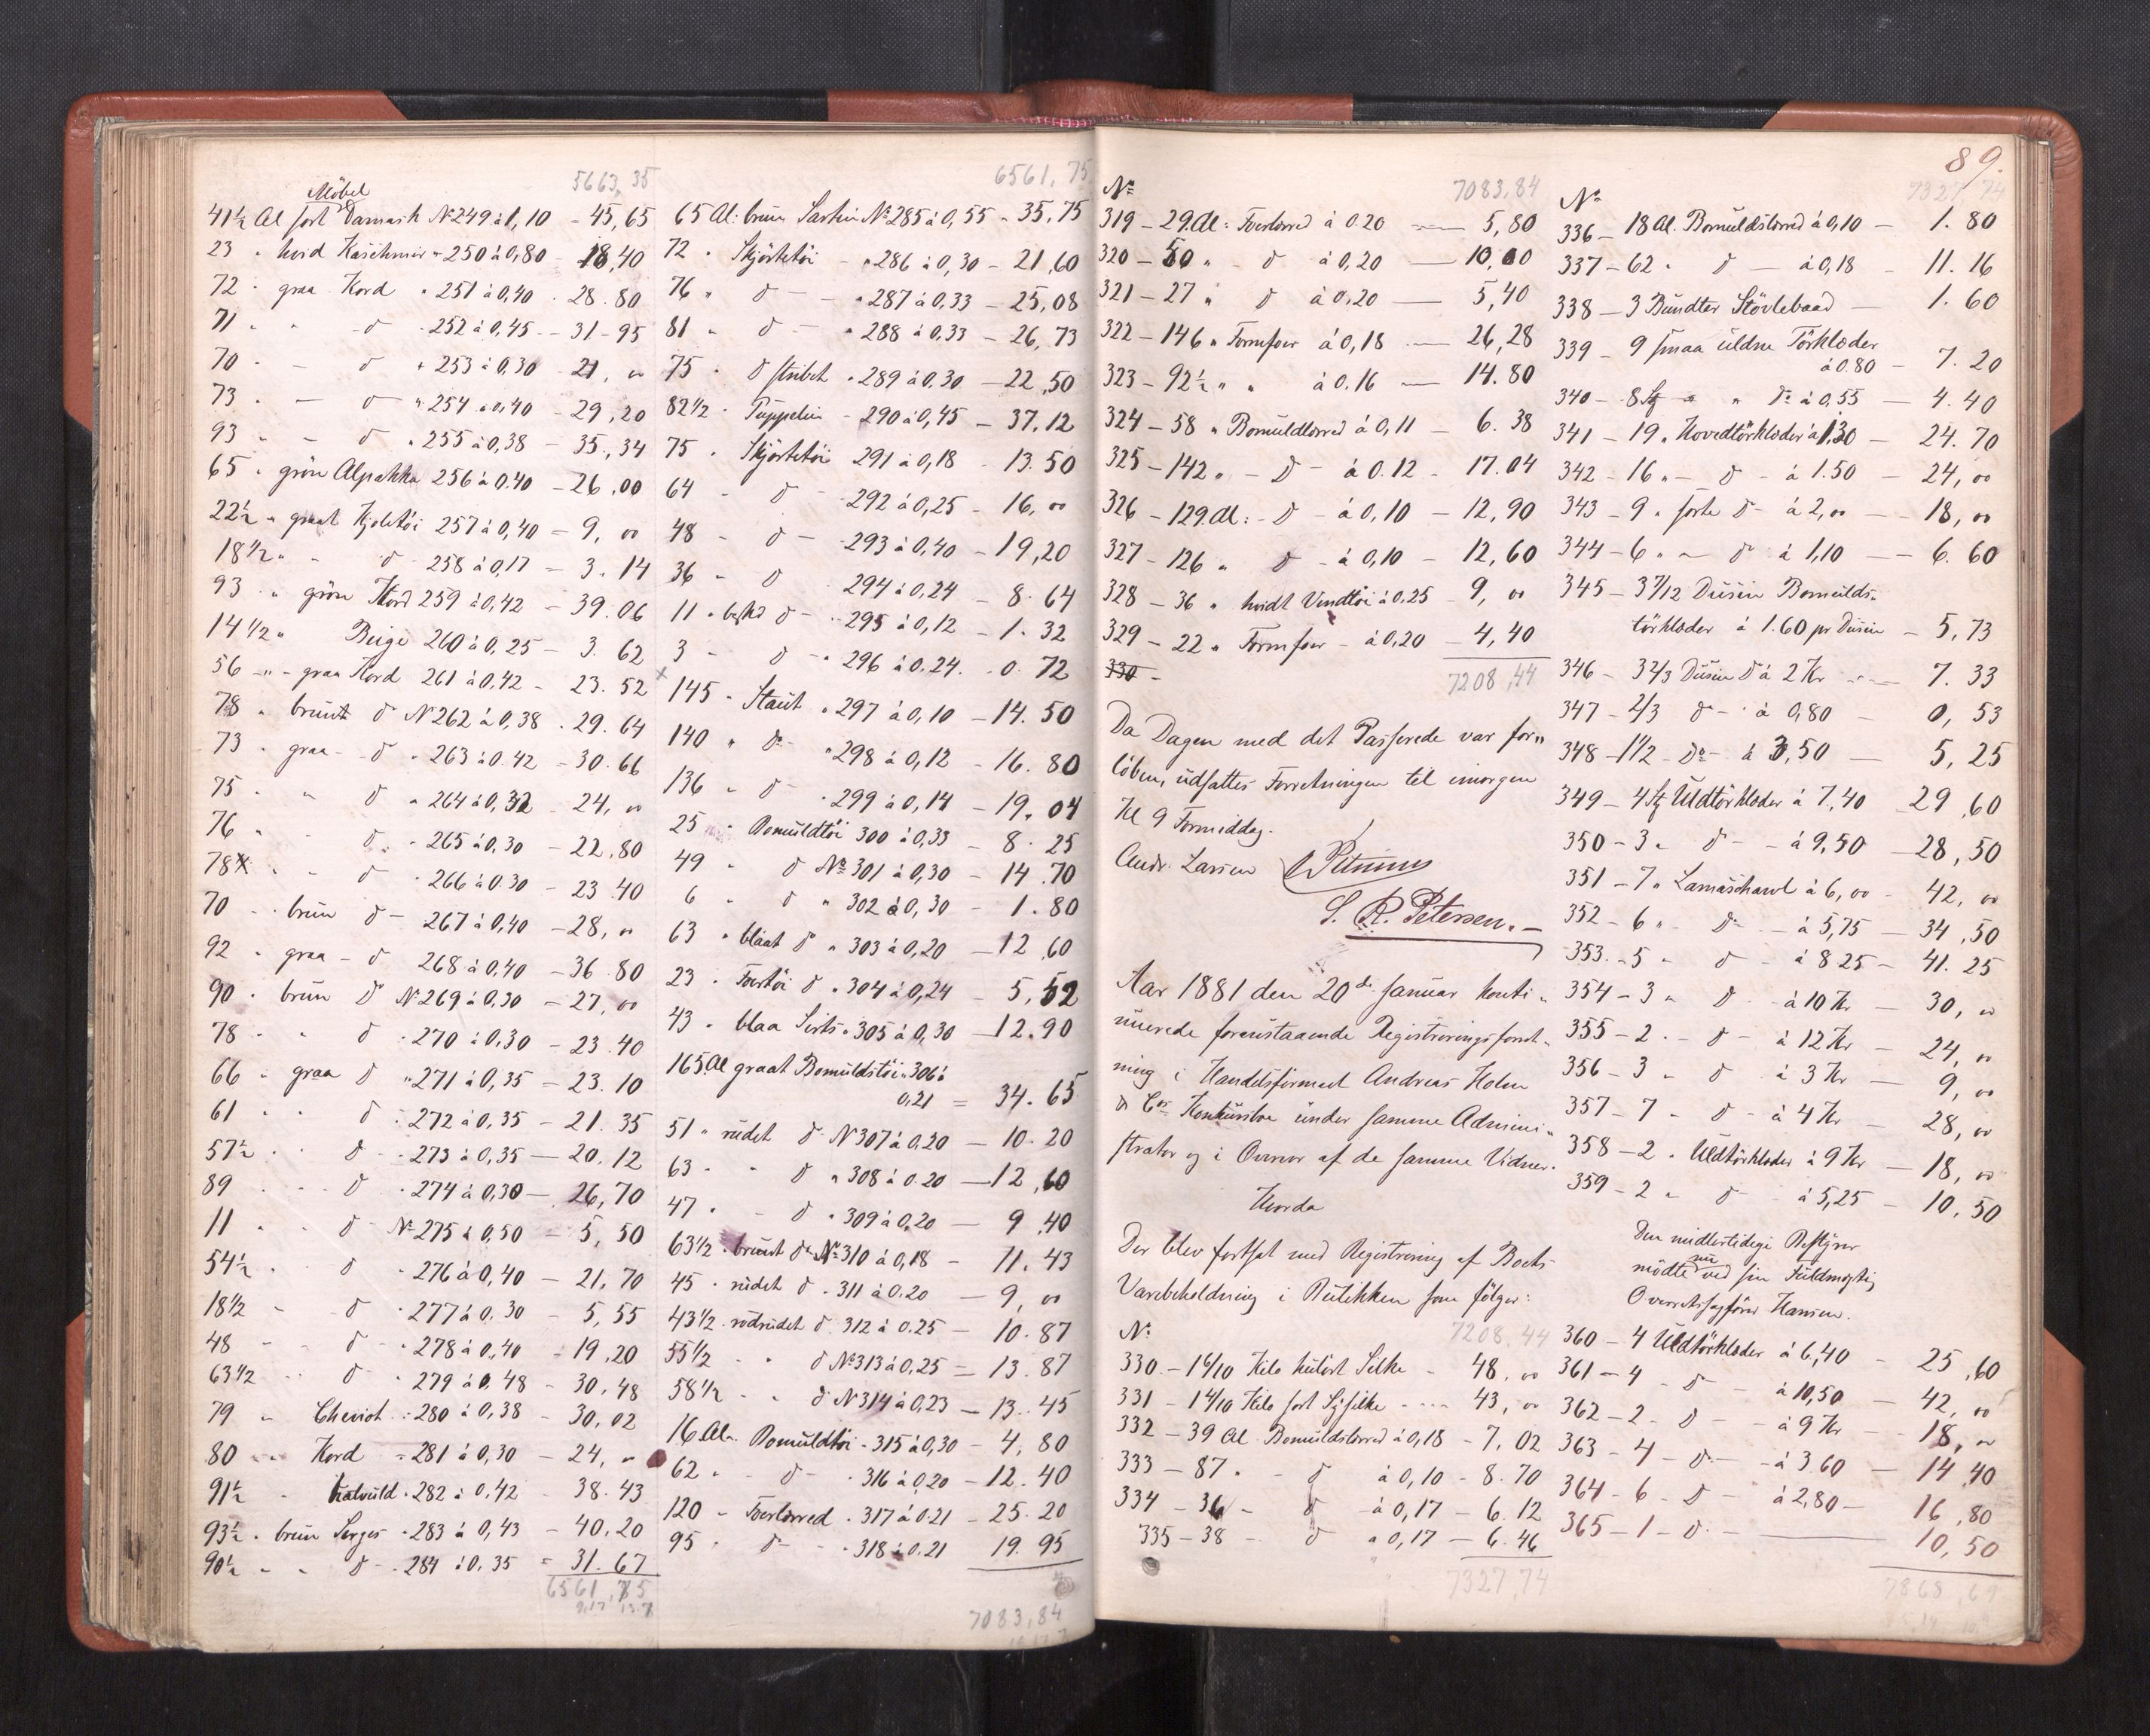 5663,35
Möbel
41½ Al sort Damask No 249 à 1,10 - 45,65
23 " hvid Kaschmir " 250 à 0,80 - 18,40
72 " graa Kord " 251 à 0,40 - 28.80
71 " " d " 252 à 0,45 - 31-95
70 " - d " 253 à 0,30 21, "
73 " - d " 254 à 0,40 - 29,20
93 " - d " 255 à 0,38 - 35,34
65 " grön Alpakka 256 à 0.40 - 26,00
22½ " graat Kjoletöi 257 à 0,40 = 9, 00
18½ " " d 258 à 0,17 = 3.14
93 " grön Kord 259 à 0,42 = 39.06
14½ " Beige 260 à 0,25 - 3.62
56 " - graa Kord 261 à 0,42 - 23.52
78 " brunt d No 262 à 0,38 . 29.64
73 " graa - d " 263 à 0.42 = 30.66
75 " " d " 264 à 0,32 - 24, 00
76 " " d " 265 à 0,30 - 22,80
78 " - d " 266 à 0.30 - 23.40
70 " brun d - 267 à 0,40 - 28, 00
92 " graa - d 268 à 0,40 - 36.80
90 " brun do No 269 à 0,30 - 27, 00
78 " " d " 270 à 0,30 - 23.40
66 " graa d " 271 à 0,35 - 23.10
61 " " d " 272 à 0,35 - 21.35
57½ " " d " 273 à 0,35 - 20.12
89 " " d " 274 à 0,30 - 26,70
11 " " d No 275 à 0,50 - 5,50
54½ " " d " 276 à 0,40 - 21.70
18½ " d " 277 à 0.30 - 5,55
48 " d " 278 à 0,40 - 19,20
63½ " d " 279 à 0.48 - 30.48
79 " Cheviot " 280 à 0,38 - 30,02
80 " Kord " 281 à 0,30 - 24, "
91½ " halvuld " 282 à 0.42 - 38.43
93½ " brun Serges " 283 à 0,43 - 40.20
90½ " " d " 284 à 0.35 = 31.67
6561,75
6561,75
65 Al: brun Sartin No 285 à 0,55 - 35,75
72 " Skjörtetöi - " 286 à 0,30 - 21,60
76 " d - " 287 à 0,33 - 25,08
81 " d - " 288 à 0.33 - 26,73
75 " d stribet " 289 à 0.30 - 22,50
82½ " Puppelin - 290 à 0,45 - 37.12
75 " Skjörtetöi 291 à 0,18 - 13.50
64 " d - 292 à 0,25 - 16, 00
48 - d - 293 à 0,40 - 19,20
36 " d 294 à 0.24 - 8.64
11 " d - " 295 à 0,12 - 1.32
3 - d - " 296 à 0.24 . 0.72
x 145 " Staut " 297 à 0,10 - 14.50
140 " do - " 298 à 0,12 - 16.80
136 " d - " 299 à 0,14 - 19.04
25 " Bomuldtöi 300 à 0,33 - 8.25
49 " d No 301 à 0,30 - 14.70
6 " d " 302 à 0,30 - 1.80
63 " blaat do " 303 à 0,20 - 12,60
23 " Foertöi d " 304 à 0,24 - 5,52
43 " blaa Sirts " 305 à 0,30 - 12.90
165 Al graat Bomuldstöi " 306 à
0.21 = 34.65
51 " rudet d No 307 à 0.20 - 10.20
63 " " d " 308 à 0.20 - 12,60
47 " - d " 309 à 0,20 - 9.40
63½ " brunt do No 310 à 0,18 - 11.43
45 " rudet d " 311 à 0.20 - 9, 00
43½ " rödrudet d 312 à 0.25 - 10.87
55½ " " d No 313 à 0,25 = 13.87
58½ " " d No 314 à 0,23 - 13.45
16 Al. Bomuldtöi " 315 à 0,30 - 4,80
62 " - d - " 316 à 0,20 - 12.40
120 - Foerlorred " 317 à 0.21 - 25.20
95 " do - " 318 à 0.21 19.95
7083,84
7083,84
No
319 - 29 Al: Foerlorred à 0.20 - 5,80
320 - 50 " - d à 0,20 - 10,00
321 - 27 " d à 0.20 - 5,40
322 - 146 " Formfoer à 0,18 - 26,28
323 - 92½ " " à 0.16 - 14.80
324 - 58 " Bomuldlorred à 0,11 - 6.38
325 - 142 " - D - à 0.12 - 17.04
326 - 129 Al: - D - à 0,10 - 12,90
327 - 126 " d - à 0,10 - 12,60
328 - 36 " hvidt Vendtöi à 0.25 - 9, 00
329 - 22 " Formfoer - à 0,20 - 4,40
330 -
7208,44
Da Dagen med det Passerede var for"
löben, udsattes Forretningen til imorgen
Kl 9 Formiddag.
Andr. Larsen
S. R. Petersen.
Aar 1881 den 20de Januar konti-
nuerede foranstaaende Registreringsforret-
ning i Handelsfirmaet Andreas Holm
& Co's Konkursbo under samme Admini-
strator og i Overvær af de samme Vidner.
Hvorda
Der blev fortsat med Registrering af Boets
Varebeholdning i Butikken som følger:
No 7208.44
330 - 1 6/10 Kilo kulört Silke - 48, 00
331 - 1 4/10 Kilo sort Sysilke - 43, 00
332 - 39 Al Bomuldslorred à 0,18 - 7,02
333 - 87 " - d à 0,10 - 8.70
334 - 36 - d à 0,17 - 6.12
335 - 38 - d à 0,17 - 6.46
7327,74
89.
7327,74
No
336 - 18 Al. Bomuldslorred à 0,10 - 1.80
337 - 62 " d - à 0,18 - 11.16
338 - 3 Bundter Stövlebaand - 1.60
339 - 9 smaa uldne Törklæder
à 0.80 - 7.20
340 - 8 St " " do à 0,55 - 4.40
341 - 19 " Hovedtörklæder à 1.30 - 24.70
342 - 16 " - d - à 1.50 - 24, 00
343 - 9 " sorte d - à 2, 00 - 18, 00
344 - 6 " - do à 1,10 - 6.60
345 - 3 7/12 Dusin Bomulds-
törklæder à 1.60 pr Dusin - 5,73
346 - 3 2/3 Dusin D à 2 Kr - 7.33
347 - 2/3 do - à 0,80 - 0,53
348 - 1½ - Do - à 3,50 - 5,25
349 - 4 St Uldtörklæder à 7,40 29,60
350 - 3 " d - - à 9,50 - 28,50
351 - 7 " Lamaschawl à 6, 00 - 42, 00
352 - 6 " - do - à 5,75 - 34,50
353 - 5 - d - à 8 25 - 41.25
354 - 3 " d - à 10 Kr - 30, 00
355 - 2 " - d - à 12 Kr - 24, 00
356 - 3 " d à 3 Kr - 9, 00
357 - 7 - d - à 4 Kr - 28, 00
358 - 2 " Uldtörklæder à 9 Kr - 18, 00
359 - 2 " d - à 5,25 - 10,50
Den midlertidige Bestyrer
nu
mödte ved sin Fuldmægtig
Overretssagfører Hansen.
360 - 4 Uldtörklæder à 6,40 - 25,60
361 - 4 - d - à 10,50 - 42, 00
362 - 2 - D - à 9 Kr - 18, 00
363 - 4 - d - à 3.60 - 14,40
364 - 6 - D - à 2,80 - 16,80
365 - 1 - d - 10,50
7868,69